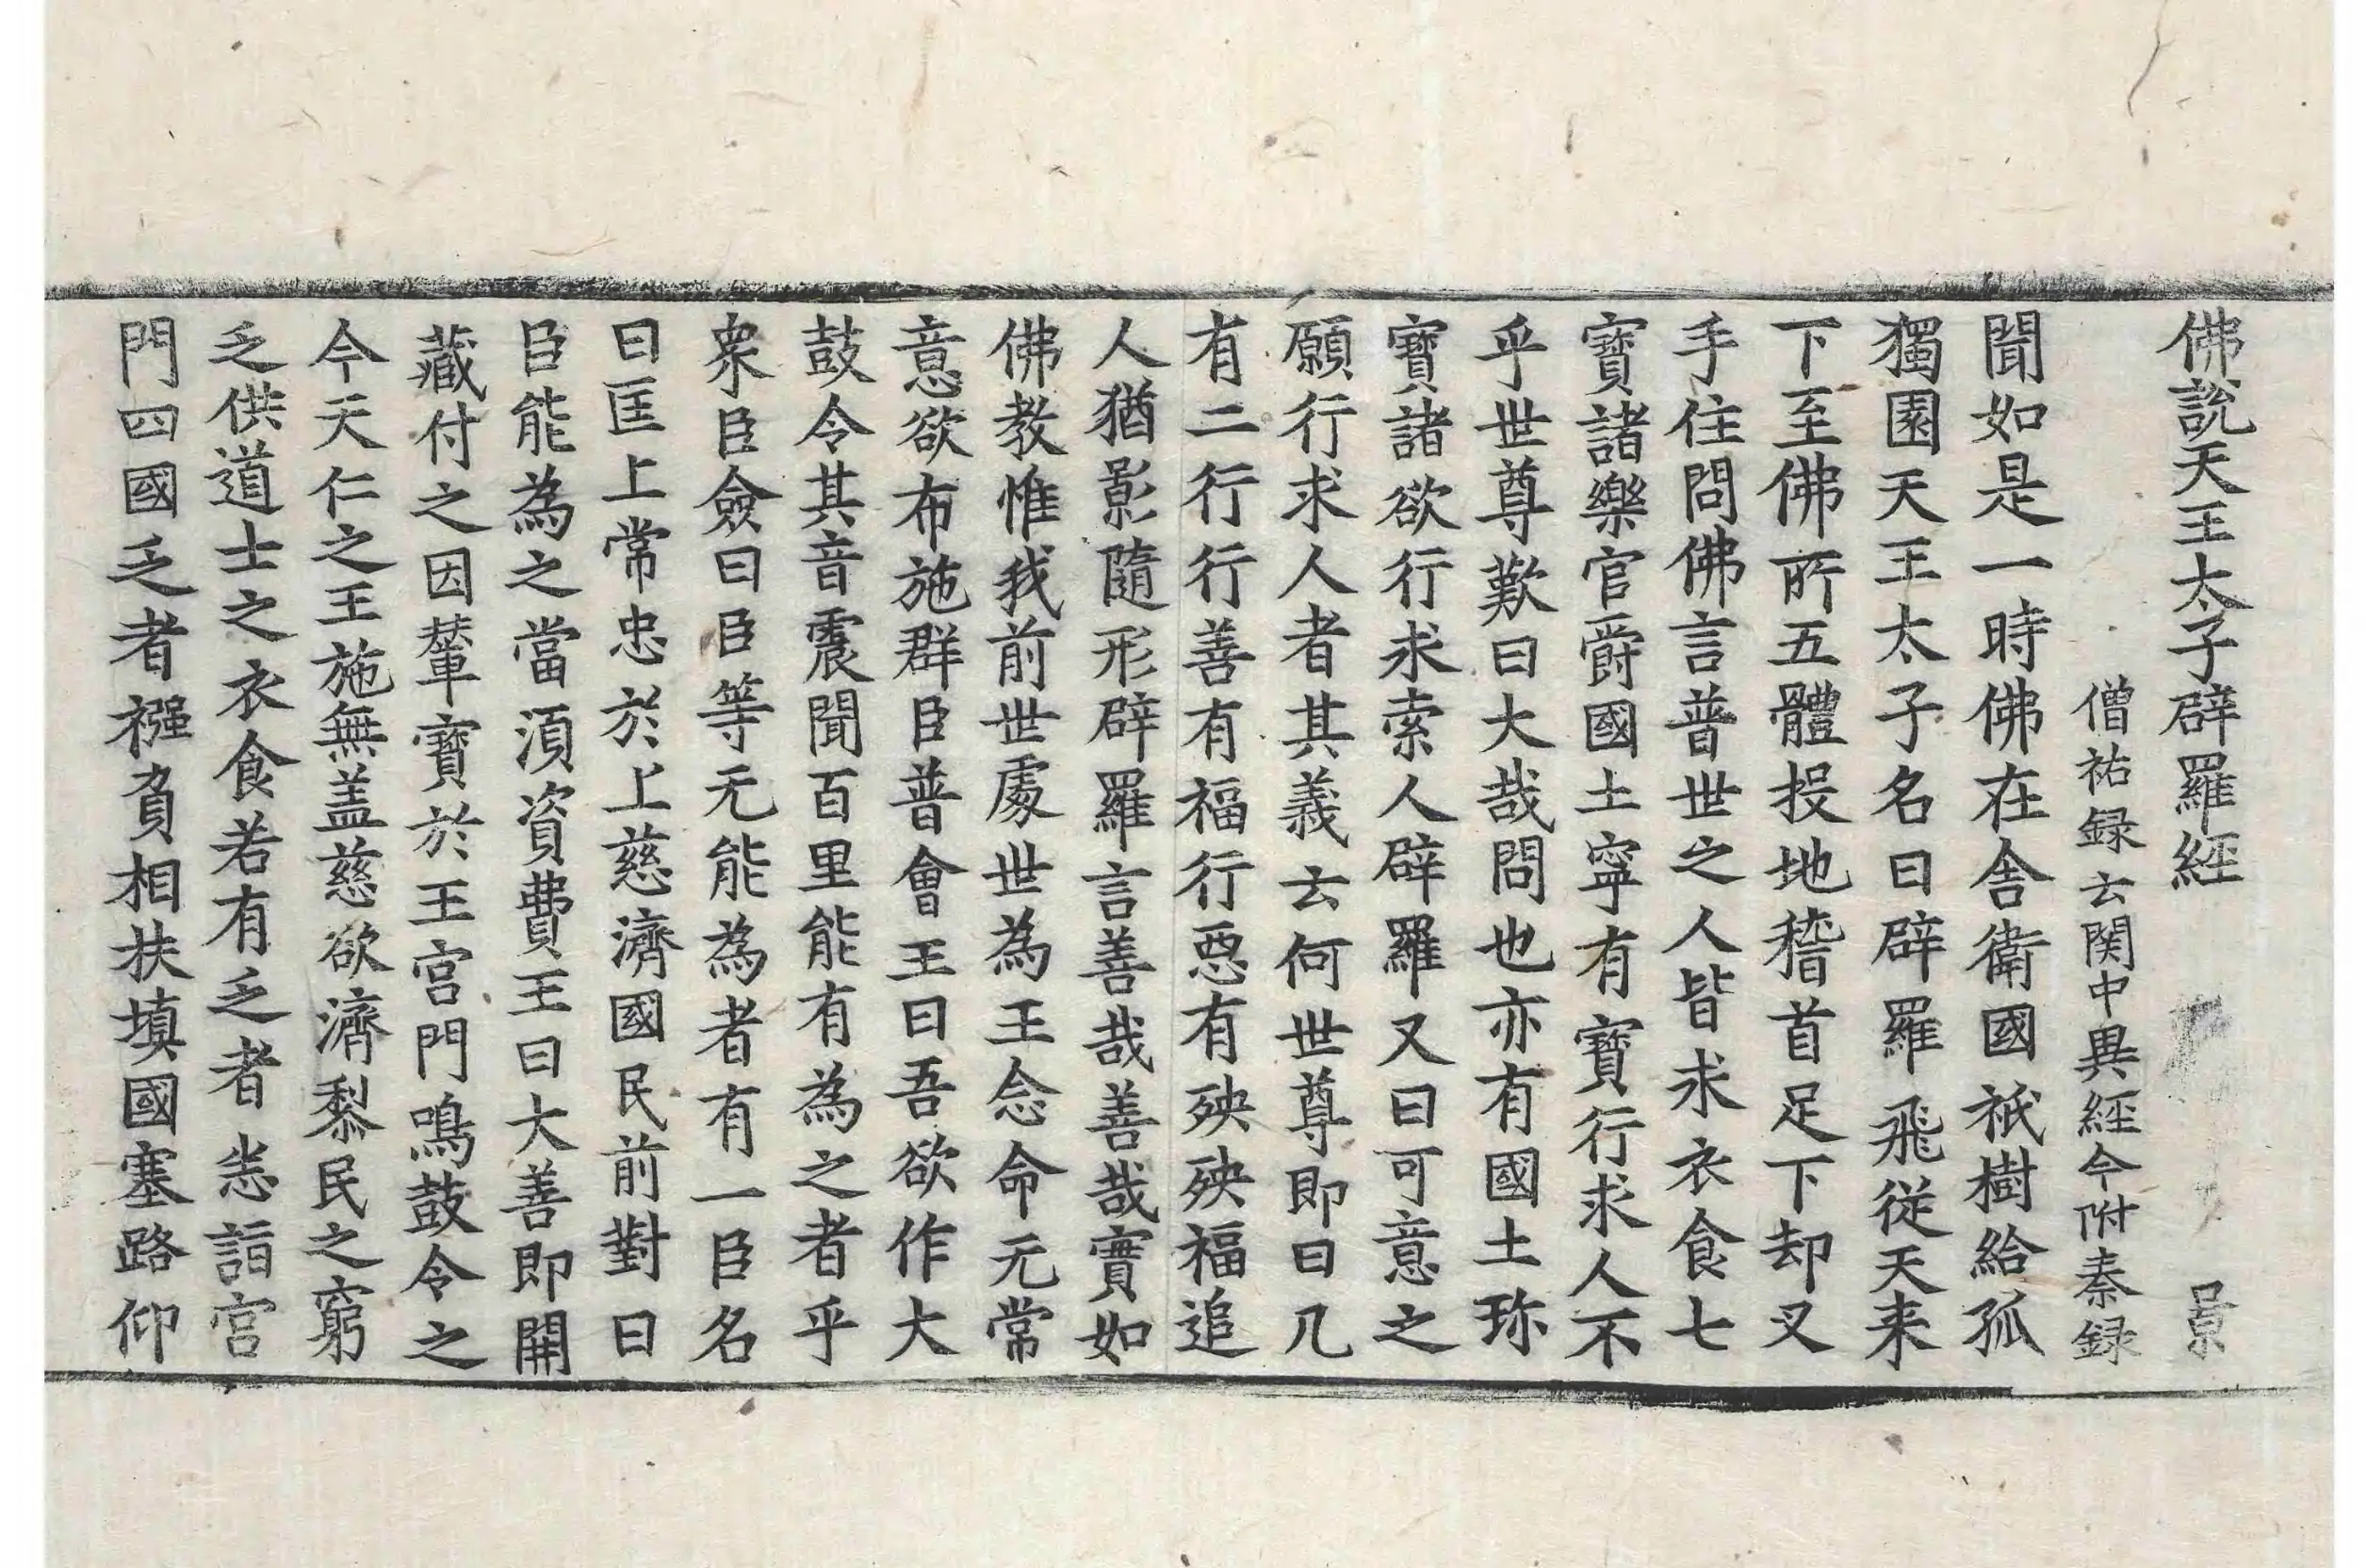 佛說天王太子辟羅經 景
僧祐録云関中異經今附秦録
聞如是一時佛在舎衛國祇樹給孤
獨園天王太子名曰辟羅飛從天来
下至佛所五體投地稽首足下却叉
手住問佛言普世之人皆求衣食七
寶諸樂官爵國土寧有寶行求人不
乎世尊歎曰大哉問也亦有國土珎
寶諸欲行求索人辟羅又曰可意之
願行求人者其義云何世尊即曰凡
有二行行善有福行惡有殃殃福追
人猶影隨形辟羅言善哉善哉實如
佛教惟我前世處世為王念命无常
意欲布施群臣普會王曰吾欲作大
鼓令其音震聞百里能有為之者乎
衆臣僉曰臣等无能為者有一臣名
曰匡上常忠於上慈濟國民前對曰
臣能為之當湏資費王曰大善即開
藏付之因輦寶於王宫門鳴鼓令之
今天仁之王施無盖慈欲濟黎民之窮
乏供道士之衣食若有乏者恙詣宫
門四國乏者襁負相扶填國塞路仰